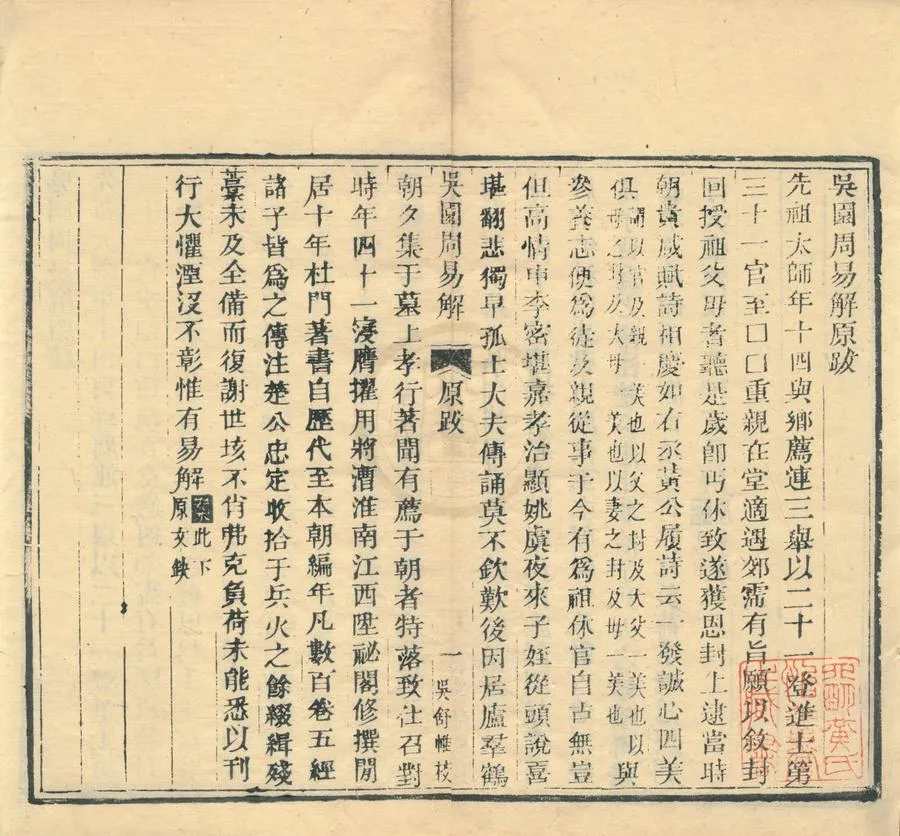 吳園周易解原跋
先祖太師年十四與鄉薦連三舉以二十一登進士第
三十一官至口口重親在堂適遇郊需有旨願以敘封
回授祖父母者聽是歲卽丐休致遂獲恩封上逮當時
朝貴咸賦詩相慶如右丞黃公履詩云一發誠心四美
俱謂以官及親一美也以父之封及大父一美也以
母之封及大母一美也以妻之封及母一美也與
參養志便爲徒及親從事于今有爲祖休官自古無豈
但高情申李密堪嘉孝治顯姚虞夜來子姪從頭說喜
堪翻悲獨早孤士大夫傳誦莫不欽歎後因居廬羣鶴
吳園周易解 原跋 一 吳舒帷校
朝夕集于墓上孝行著聞有薦于朝者特落致仕召對
時年四十一寖膺擢用將漕淮南江西陞祕閣修撰閒
居十年杜門著書自歷代至本朝編年凡數百卷五經
諸子皆爲之傳注楚公忠定收拾于兵火之餘綴緝殘
藁未及全備而復謝世垓不肖弗克負荷未能悉以刊
行大懼湮沒不彰惟有易解案此下原文缺